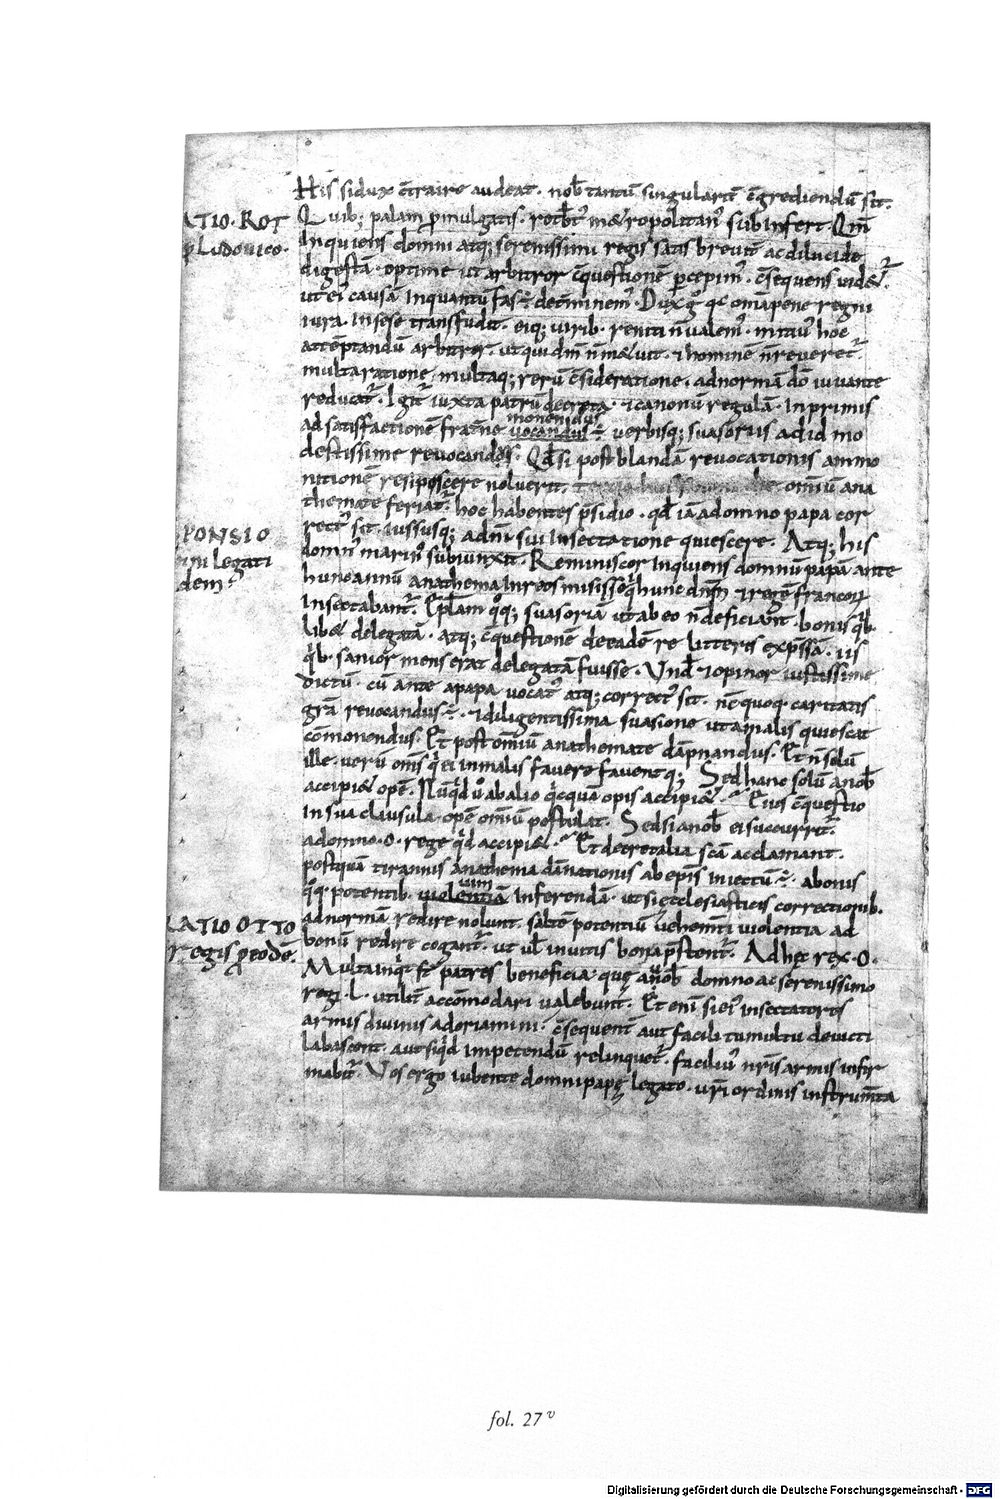 His si dux c̄traire audeat· nob̄ tantū singularit̄ c̄grediendū sit·
ATIO· ROT
ꝑ Ludouico·
Quib; palam ꝓmulgatis· rotb̄t᾽ metropolitan᾽ subinfert· Qm̄
inquiens domni atq; serenissimi regis satis breuit̄ ac dilucide
digestā· optime ut arbitror c̄questionē ꝑcepim᾽· c̄sequens uidet᾽·
ut ei causā inquantū fas ÷ det̄minem᾽· Dux g° q omīa pene regni
iura· in sese transfudit· eiq; uirib· reniti n̄ualem᾽· mitiu᾽ hoc
attēptandū arbitror· ut qui dm̄ n̄ metuit· & hominē n̄reueret᾽·
multa ratione· multaq; rerū c̄sideratione· ad normā dō iuuante
reducat᾽· Igit̄ iuxta patrū decreta· & canonū regulā· in primis
monendus
ad satisfactionē frat̄ne uocandus ÷ uerbisq; suasoriis ad id mo
destissime reuocand᾽· Qd̄ si post blandā reuocationis ammo
nitionē resiposcere noluerit· omniū ana
themate feriat᾽· hoc habentes p̄sidio· qd̄ iā a domno papa cor
rect᾽ sit· iussusq; a dn̄i sui insectatione quiescere· Atq; his
PONSIO
ini legati
dem÷
domn᾽ marin᾽ subiunxit· Reminiscor inquiens domnū papā ante
hunc annū anathema in eos misisse q̇ hunc dn̄m & regē francorꝝ
insectabant᾽· Epl̄am q°q; suasoriā ut ab eo n̄ deficiant· bonis q̇b·
libet delegatā· atq; c̄questionē de eadē re litteris exp̄ssā· iis
q̇b· sanior mens erat delegatā fuisse· Vnd̄ & opinor iustissime
dictū· cū ante a papa uocat᾽ atq; correct᾽ sit· nc̄ quoq· caritatis
grā reuocandus ÷· & diligentissima suasione ut a malis quiescat
cōmonendus· Et post omniū anathemate dāpnandus· Et n̄ solū
ille· ueru omīs q̇ ei in malis fauere fauentq; Sed hanc solū a nob̄
accipiet opē· Nūq̇d ū ab alio q̇cquā opis accipiet· Eius c̄questio
in sua clausula· opē omniū postulat· Sed si a nob̄ ei succurrit᾽·
a domno· O· rege q̇d accipiet· Et decretalia scā acclamant·
postquā tirannis anathema dānationis ab epīs iniectū ÷· a bonis
uim
q°q; potentib· uiolentiā inferendā· ut si ecclesiasticis correctionib·
ad normā redire nolunt· saltē potentiū uehem̄ti uiolentia ad
RATIO OTTO
regis ꝓ eodē·
bonū redire cogant᾽· ut ul̄ inuitis bona p̄stent᾽· Ad hęc rex· O·
Multa inquit fr̄ patres beneficia· quę a nob̄ domno ac serenissimo
regi· L· utilit̄ accōmodari ualebunt· Et eni si ei᾽ insectatores
armis diuinis adoriamini· c̄sequent̄ aut facili tumultu deuicti
labascent· aut siq̇d impetendū relinquet᾽· faciliu᾽ nr̄is armis infir
mabit᾽· Vos ergo iubente domni papę legato· ur̄i ordinis instrum̄ta
fol. 27ᵛ
Digitalisierung gefördert durch die Deutsche Forschungsgemeinschaft - DFG